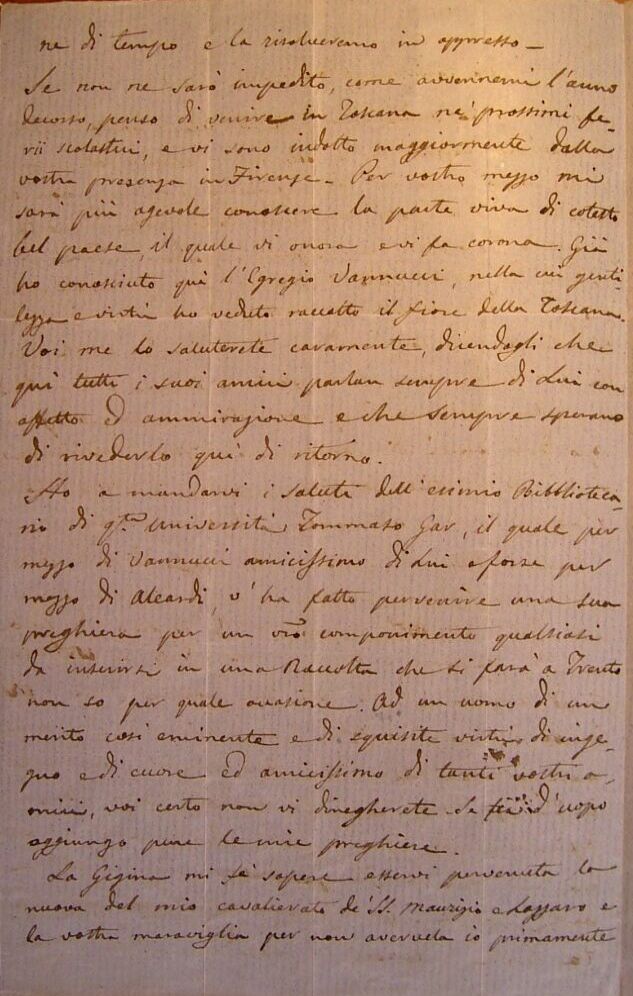 ne di tempo e la risolveremo in appresso –
Se non ne sarò impedito, come avvennemi l'anno
decorso, penso di venire in Toscana ne' prossimi fe-
rii scolastici, e vi sono indotto maggiormente dalla
vostra presenza in Firenze. Per vostro mezzo mi
sarà più agevole conoscere la parte viva di cotesto
bel paese, il quale vi onora e vi fa corona. Già
ho conosciuto quì l'Egregio Vannucci, nella cui genti-
lezza e virtù ho veduto raccolto il fiore della Toscana.
Voi me lo saluterete caramente, dicendogli che
quì tutti i suoi amici parlan sempre di Lui con
affetto ed ammirazione e che sempre sperano
di rivederlo quì di ritorno.
Ho a mandarvi i saluti dell'esimio Bibbliteca-
rio di q.ta Università Tommaso Gar, il quale per
mezzo di Vannucci amicissimo di Lui e forse per
mezzo di Aleardi, v'ha fatto pervenire una sua
preghiera per un vro componimento qualsiasi
da inserirsi in una Raccolta che si farà a Trento
non so per quale occasione. Ad un uomo di un
merito così eminente e di squisite virtù di inge-
gno e di cuore ed amicissimo di tanti vostri a-
mici, voi certo non vi dinegherete. Se fia d'uopo
aggiungo pure le mie preghiere.
La Gigina mi fè sapere esservi pervenuta la
nuova del mio cavalierato de' SS. Maurizio e Lazzaro e
la vostra maraviglia per non avervela io primamente